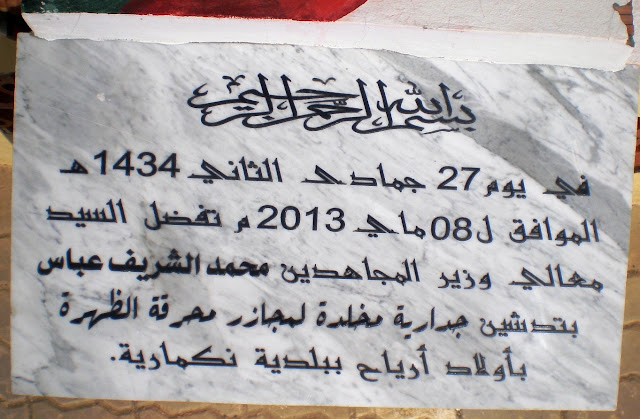 بسم الله الرحمن الرحيم
في يوم 27 جمادى الثاني 1434 هـ
الموافق ل 08 ماي 2013 م تفضل السيد
معالي وزير المجاهدين محمد الشريف عباس
بتدشين جدارية مخلدة لمجازر محرقة الظهرة
بأولاد أرياح ببلدية نكمارية.